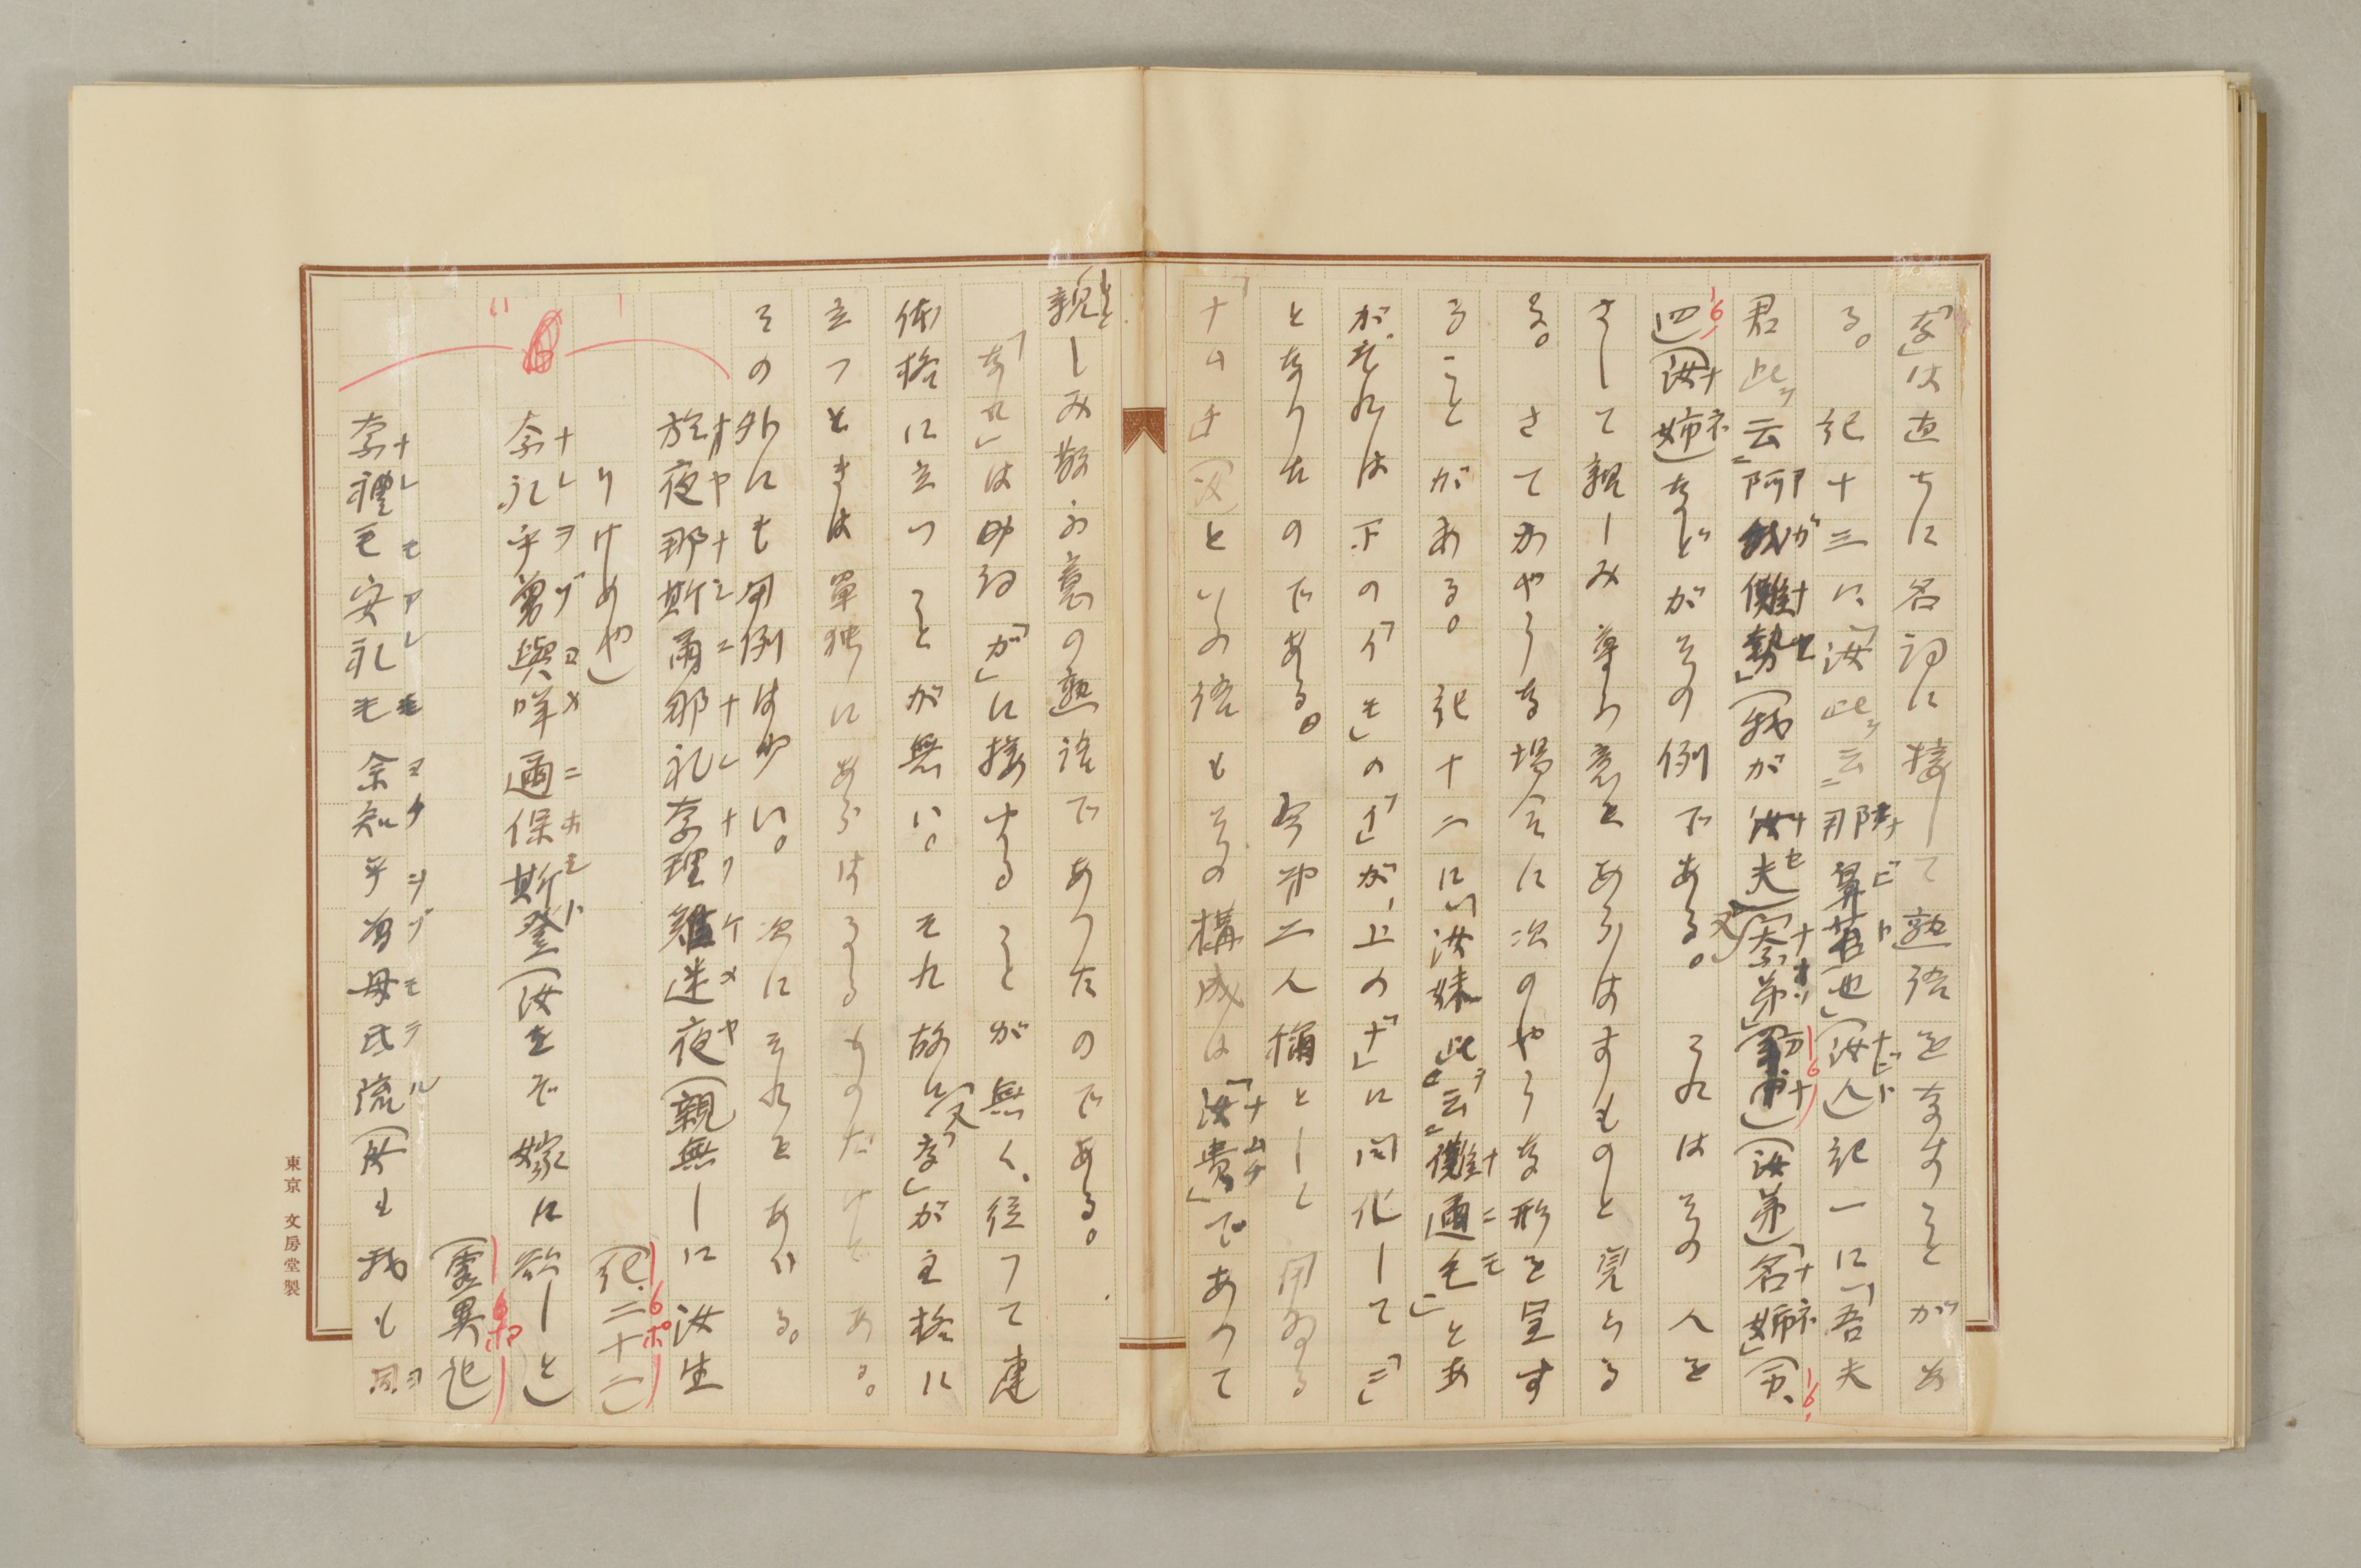 「な」は直ちに名詞に接して熟語をなすことがあ
る。紀十三に、「汝此ヲ云ニ那鼻苔也」(汝人)記一に、「吾夫
君此ヲ云ニ阿我儺勢」(我が汝夫)又「奈弟」(汝弟)「名姉」(万、
四)(汝姉)などがその例である。これはその人を
さして親しみ尊ふ意をあらはすものと覚ら
る。さてかやうな場合に次のやうな形を呈す
ることがある。紀十二に、「汝妹此ヲ云ニ儺邇毛」とあ
が、それは下の「イモ」の「イ」が、上の「ナ」に同化して「ニ」
となりたのである。第二人稱として用ゐる
「ナムチ」(汝)といふ語もその構成は「汝貴」であつて
もと親しみ敬ふ意の熟語であつたのである。
「なれ」は助詞「が」に接することが無く、従つて連
体格に立つことが無い。それ故に、又「な」が主格に
立つときは單独にあらはるるものだけとある。
その外にも用例は少い。次にそれをあげる。
於夜那斯爾那礼奈理雞迷夜(親無しに汝生
りけめや)(紀、二十二)
奈礼乎曽與咩邇保斯登(汝をぞ嫁に欲しと)
(霊異記)
奈禮毛安礼毛余知乎曽母氐流(汝も我も同
オヤナシニナレナリケメヤ
ナレヲゾヨメニホシト
ナレモアレモヨチヲゾモテル
東京 文房堂製